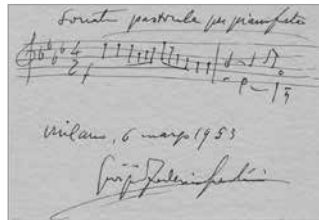 Sonata pastorale per pianoforte
4
2 f
Milano, 6 marzo 1953